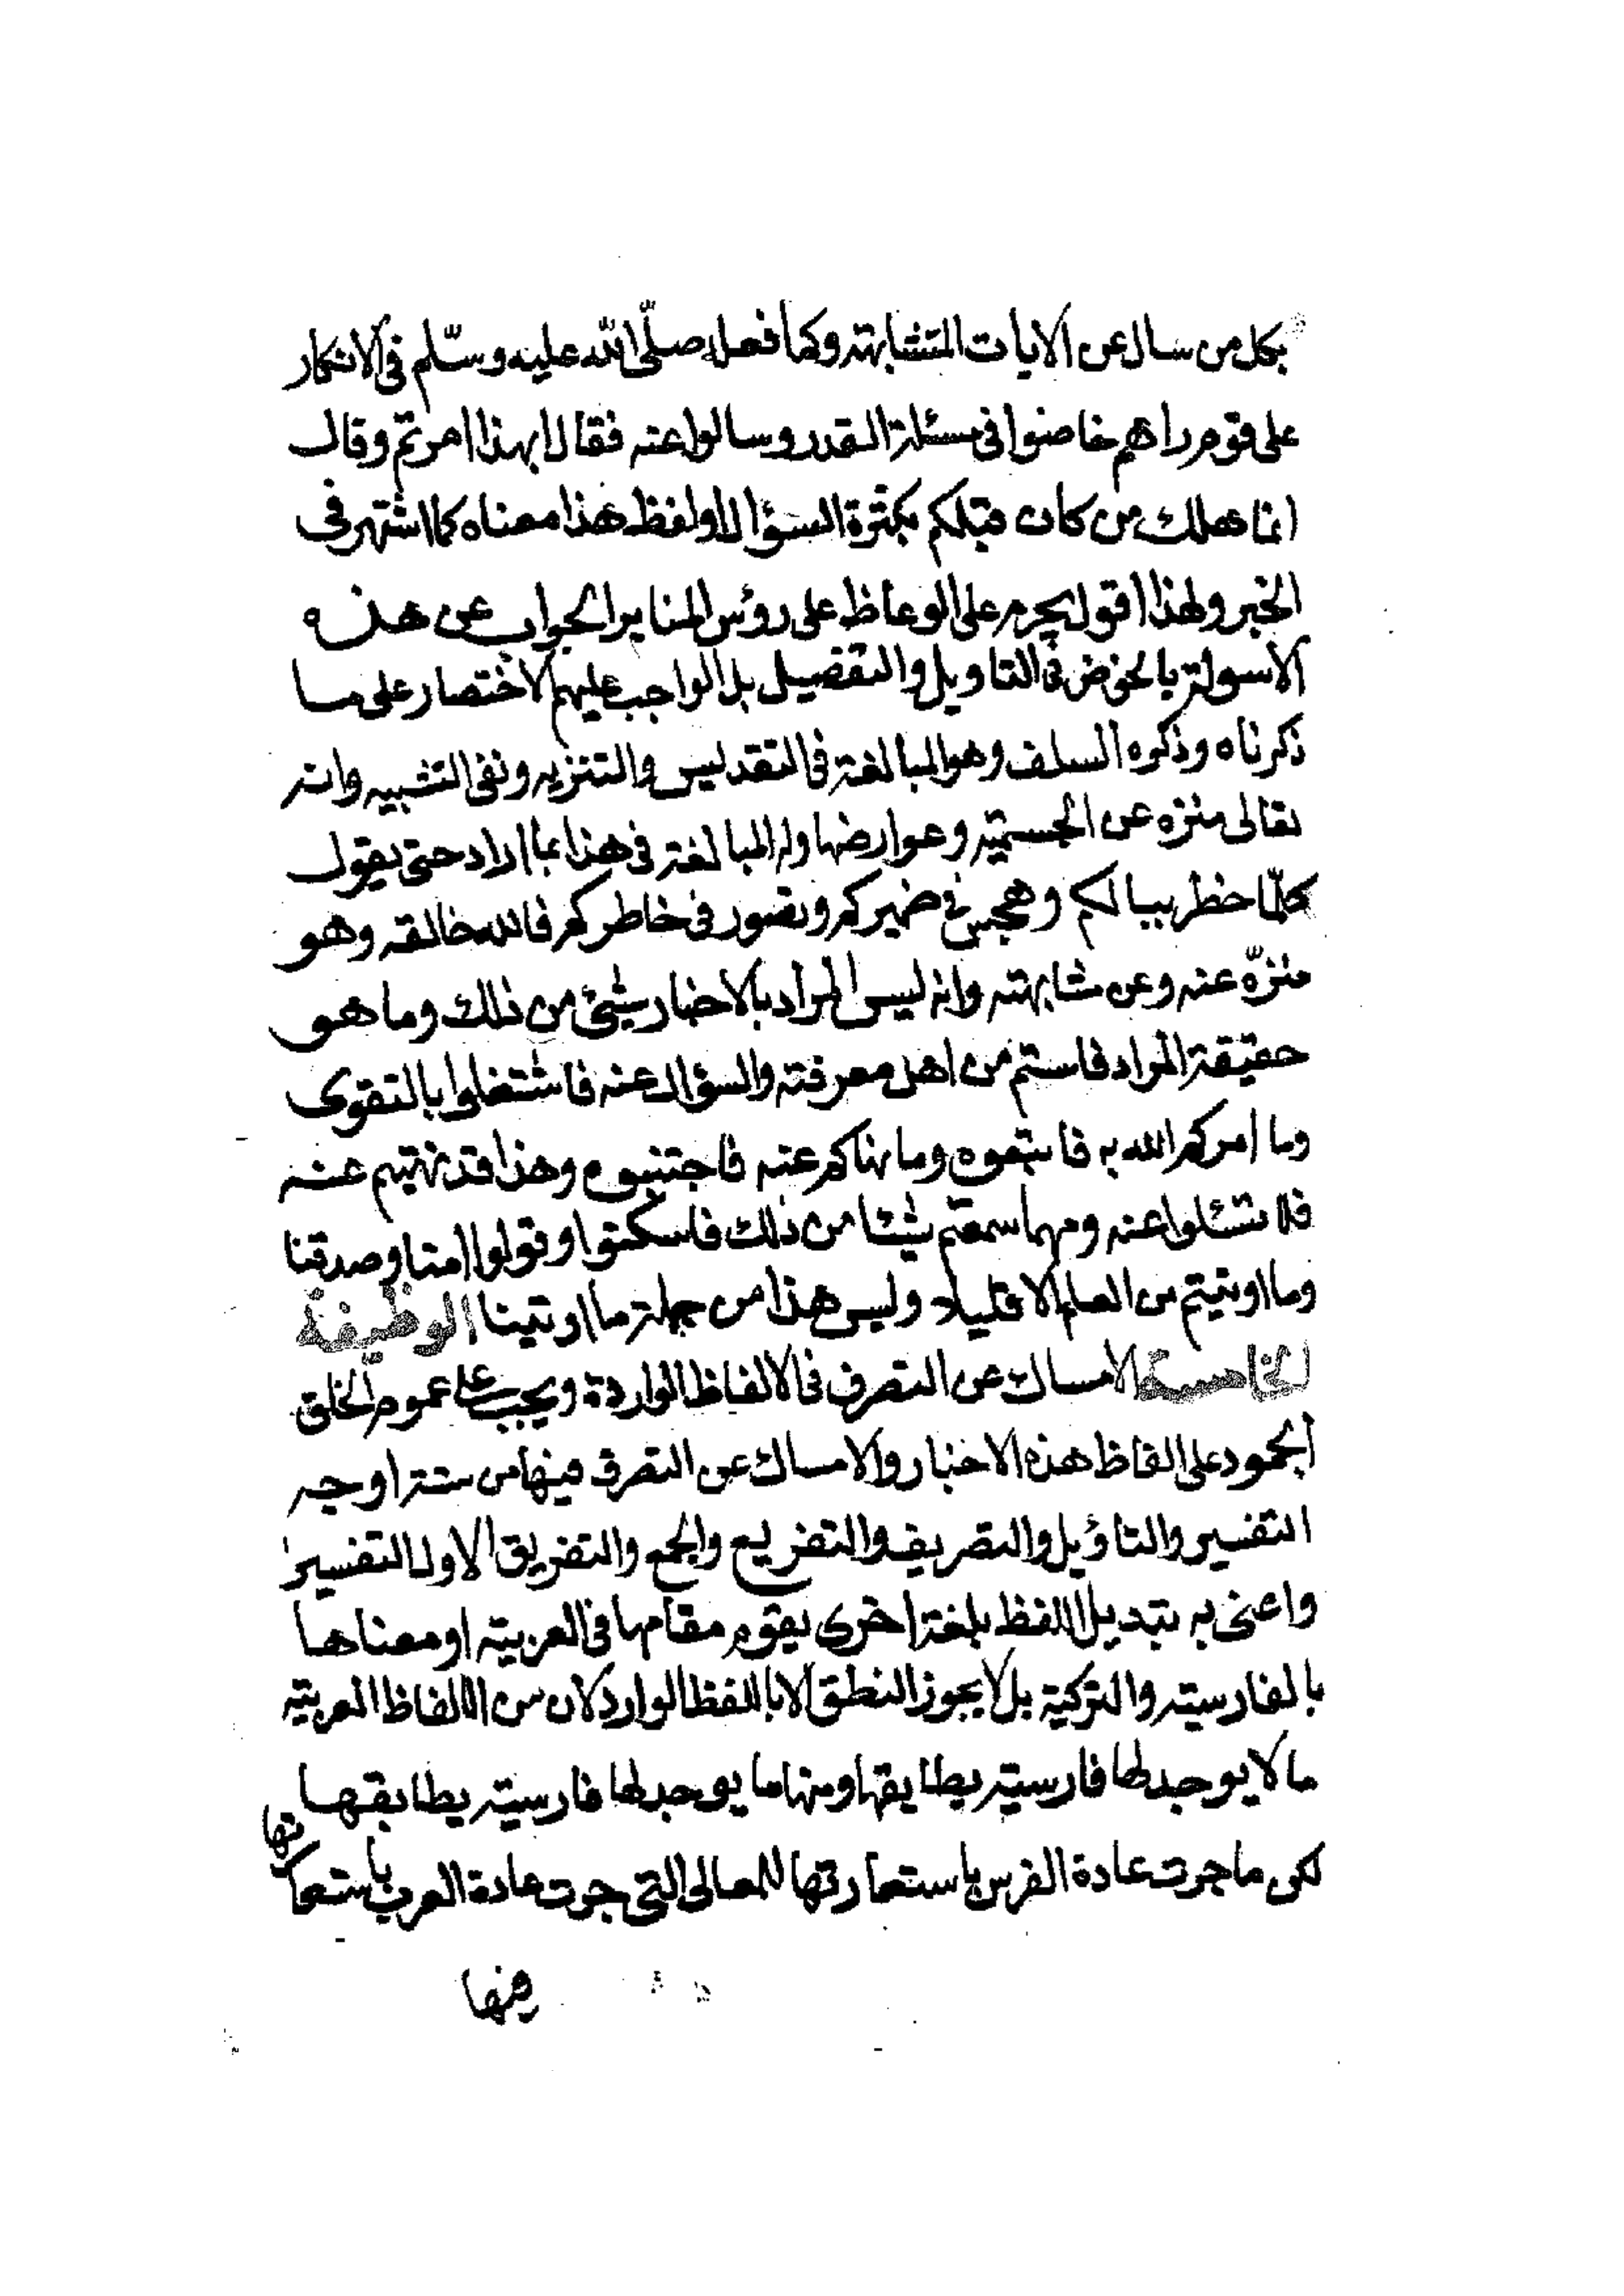 بكل من سال عن الايات المتشابهة وكما فعله صلّى الله عليه وسلّم فى الانكار
على قوم راهم خاضوا فى مسئلة القدر وسالوا عنه فقال ابهذا امرتم وقال
انما هلك من كان قبلكم بكثرة السؤال او لفظ هذا معناه كما اشتهر فى
الخبر ولهذا اقول يحرم على الوعاظ على رؤس المنابر الجواب عن هذه
الاسولة بالخوض فى التاويل والتفصيل بل الواجب عليهم الاختصار على ما
ذكرناه وذكره السلف وهو المبالغة فى التقديس والتنزيه ونفى التشبيه وانه
تعالى منزه عن الجسمية وعوارضها وله المبالغة فى هذا بما اراد حتى يقول
كلّما خطر ببالكم وهجس فى ضميركم وتصور فى خاطركم فالله خالقه وهو
منزّه عنه وعن مشابهته وانه ليس المراد بالاخبار بشئ من ذلك وما هو
حقيقة المراد فلستم من اهل معرفته والسؤال عنه فاشتغلوا بالتقوى
وما امركم الله به فاتبعوه وما نهاكم عنه فاجتنبوه وهذا قد نهيتم عنه
فلا تسئلوا عنه ومهما سمعتم شيئا من ذلك فاسكتوا وقولوا امنا وصدقنا
وما اوتيتم من العلم الا قليلا وليس هذا من جملة ما اوتينا الوظيفة
الخامسة الامساك عن التصرف فى الالفاظ الواردة ويجب على عموم الخلق
الجمود على الفاظ هذه الاخبار والامساك عن التصرف فيها من ستة اوجه
التفسير والتاؤيل والتصريف والتفريع والجمع والتفريق الاول التفسير
واعنى به تبديل اللفظ بلغة اخرى يقوم مقامها فى العربية او معناها
بالفارسية والتركية بل لا يجوز النطق الا باللفظ الوارد لان من الالفاظ العربية
ما لا يوجد لها فارسية يطابقها ومنها ما يوجد لها فارسية يطابقها
لكن ما جرت عادة الفرس باستعارتها للمعانى التى جرت عادة العرب باستعارتها
منها